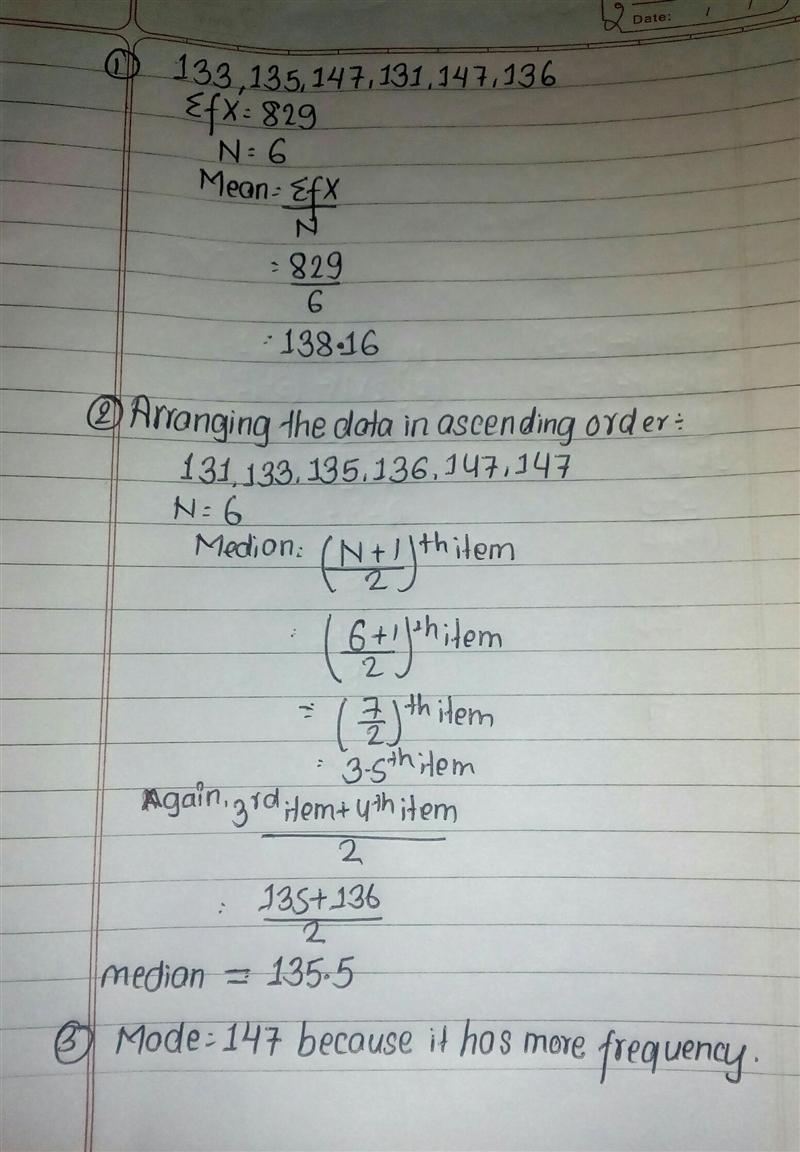 Date: / /
① 133, 135, 147, 131, 147, 136
ΣfX = 829
N = 6
Mean = ΣfX
N
= 829
6
= 138.16
② Arranging the data in ascending order ÷
131, 133, 135, 136, 147, 147
N = 6
Medion: (N+1/2)th item
: (6+1/2)th item
= (7/2)th item
: 3.5th item
Again, 3rd item + 4th item
2
: 135+136
2
median = 135.5
③ Mode = 147 because it has more frequency.